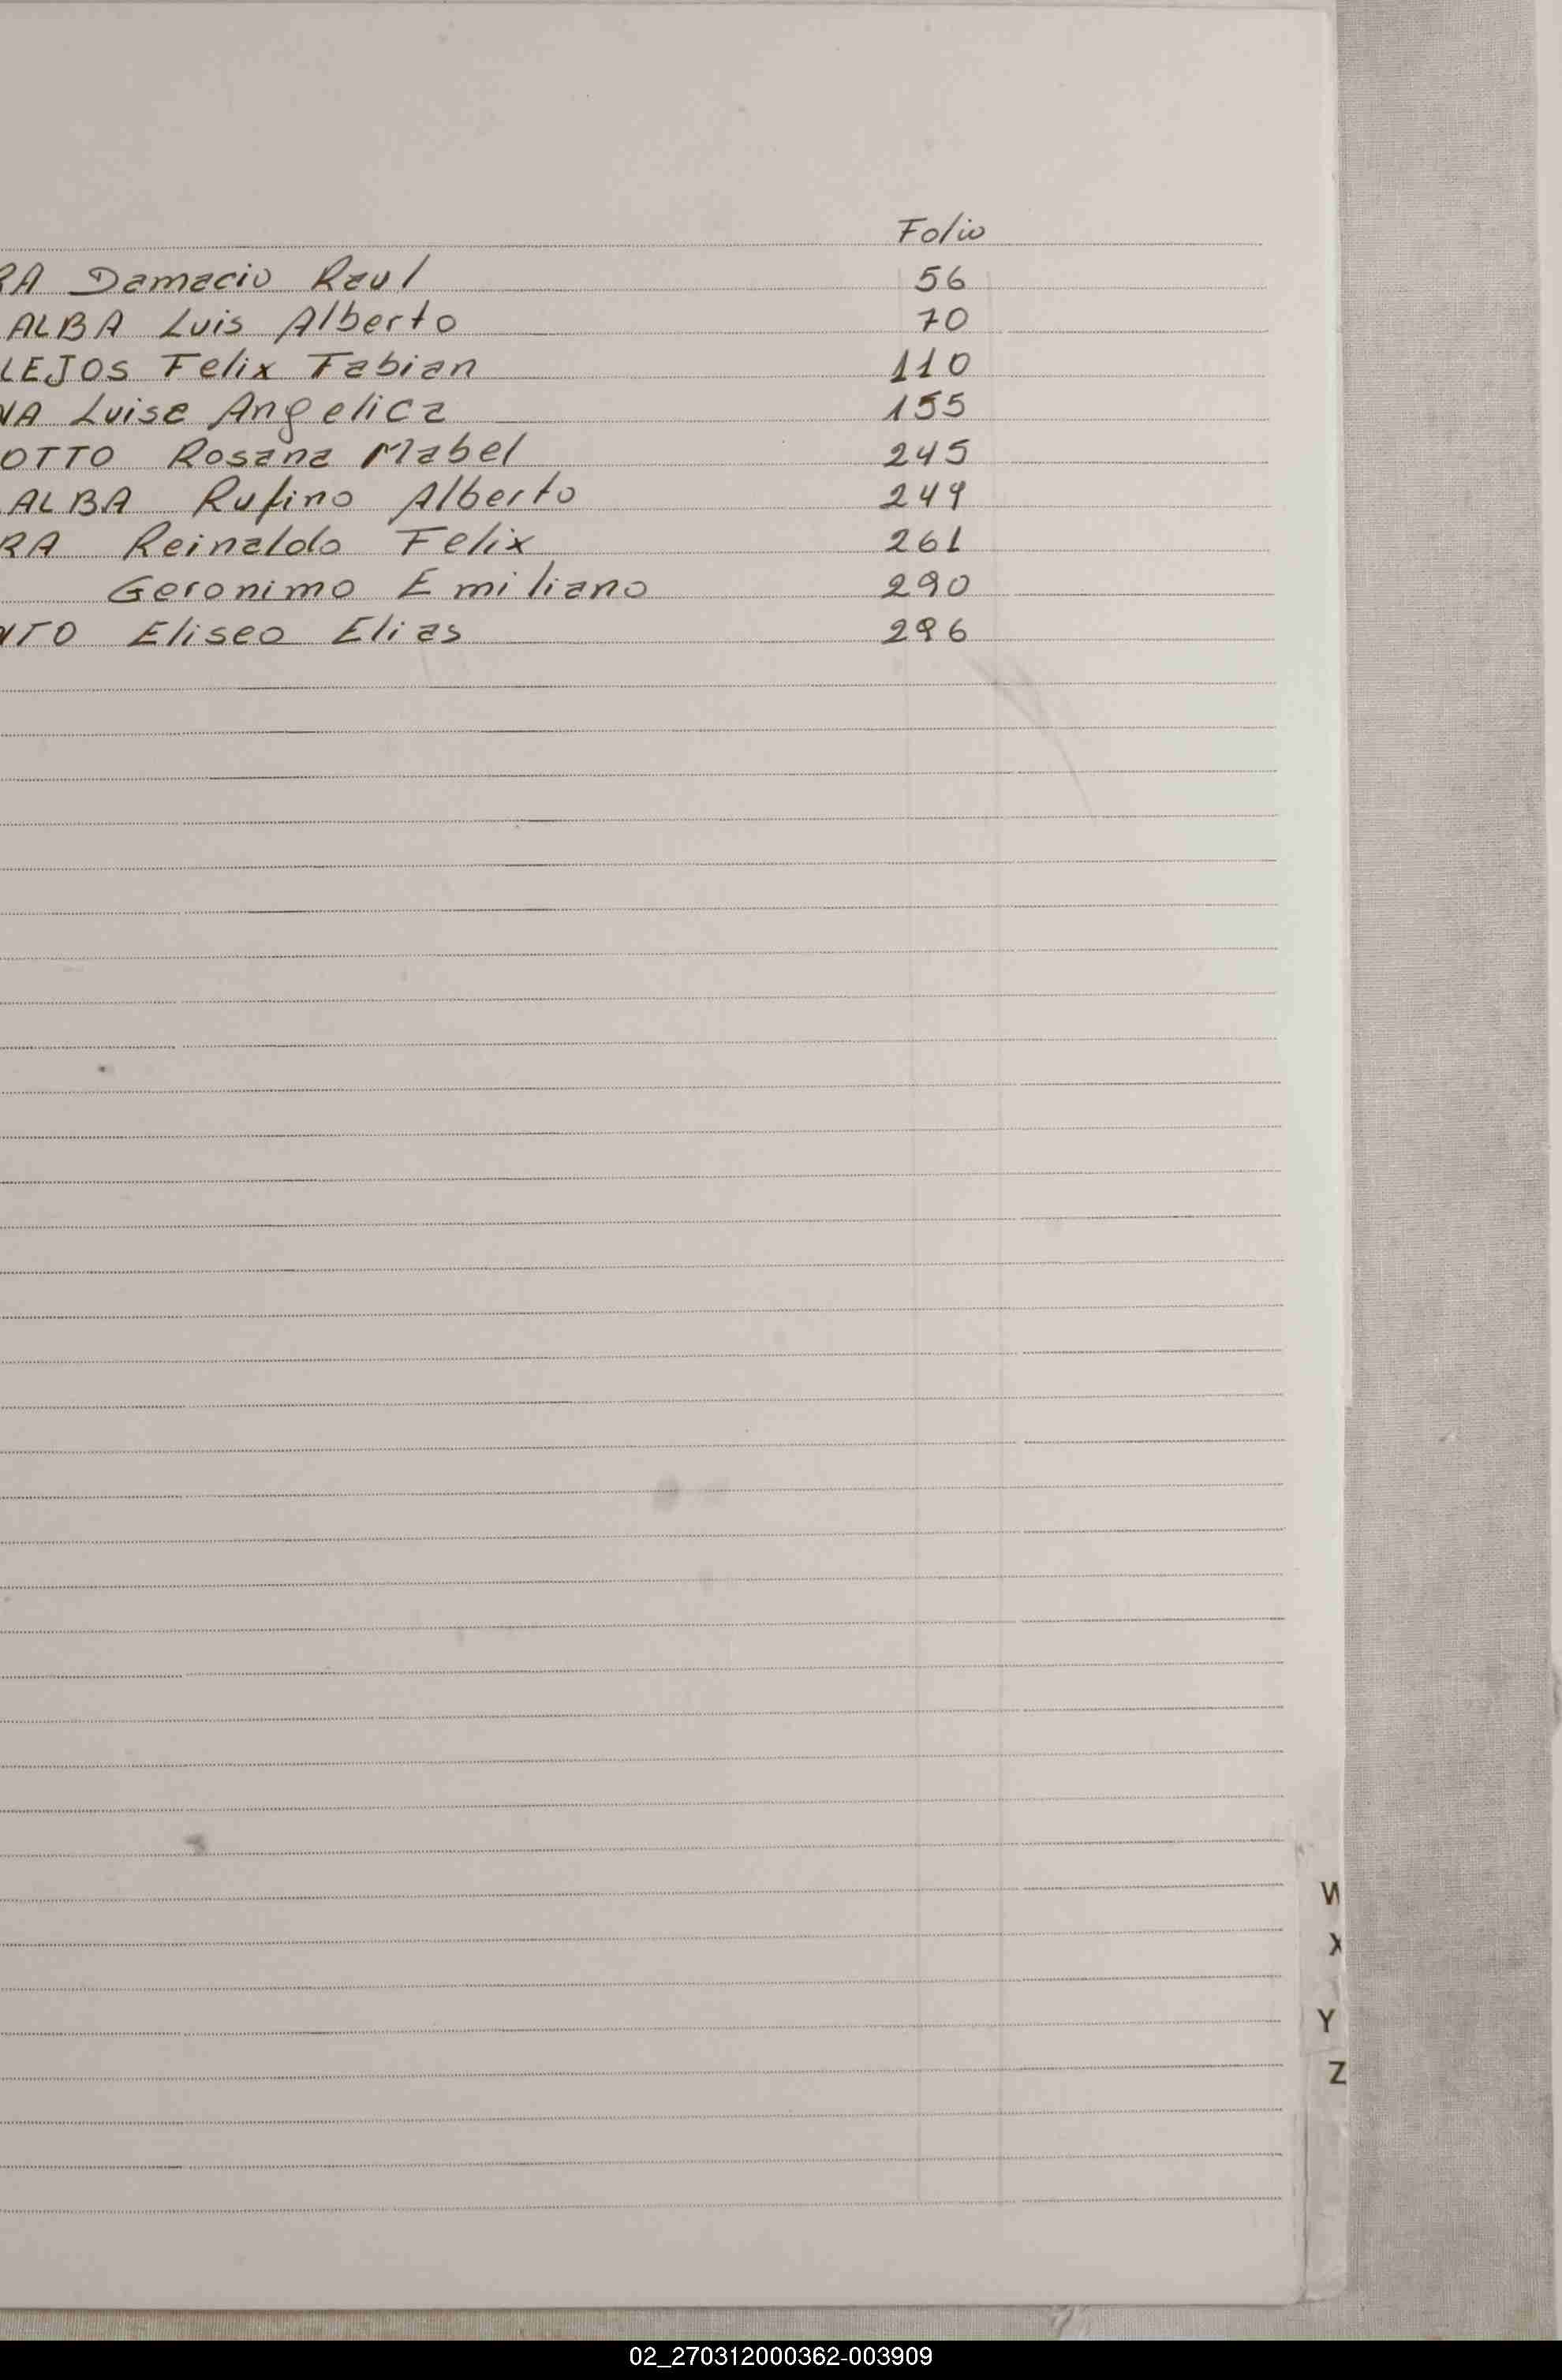 Folio
RA Damacio Raul 56
ALBA Luis Alberto 70
LEJOS Felix Fabian 110
NA Luisa Angelica 155
OTTO Rosana Mabel 245
ALBA Rufino Alberto 249
RA Reinaldo Felix 261
Geronimo Emiliano 290
NTO Eliseo Elias 296
W
X
Y
Z
02_270312000362-003909